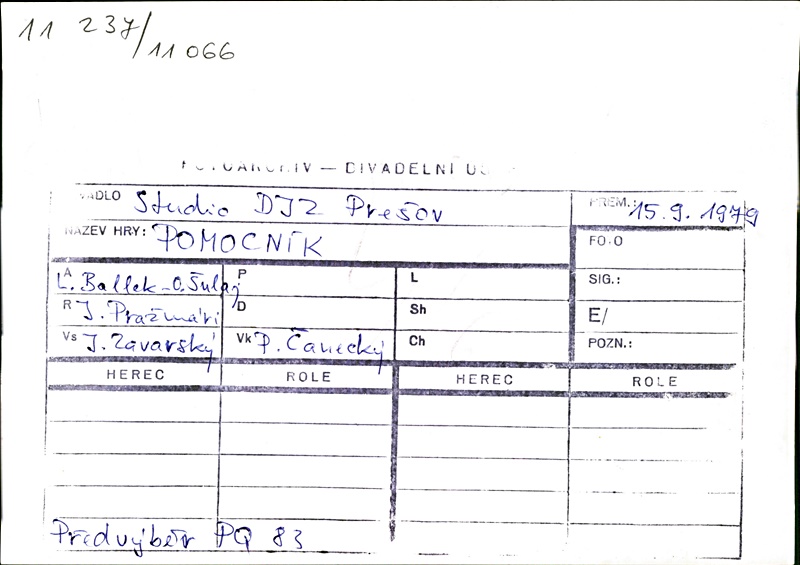 11 237/11 066
FOTOARCHIV — DIVADELNÍ
DIVADLO Studio DJZ Prešov PREM.: 15. 9. 1979
NÁZEV HRY: POMOCNÍK FOTO
A L. Ballek - O. Šulaj P L SIG.:
R J. Pražmári D Sh E/
Vs J. Zavarský Vk P. Čanecký Ch POZN.:
HEREC ROLE HEREC ROLE
Předvýběr PQ 83